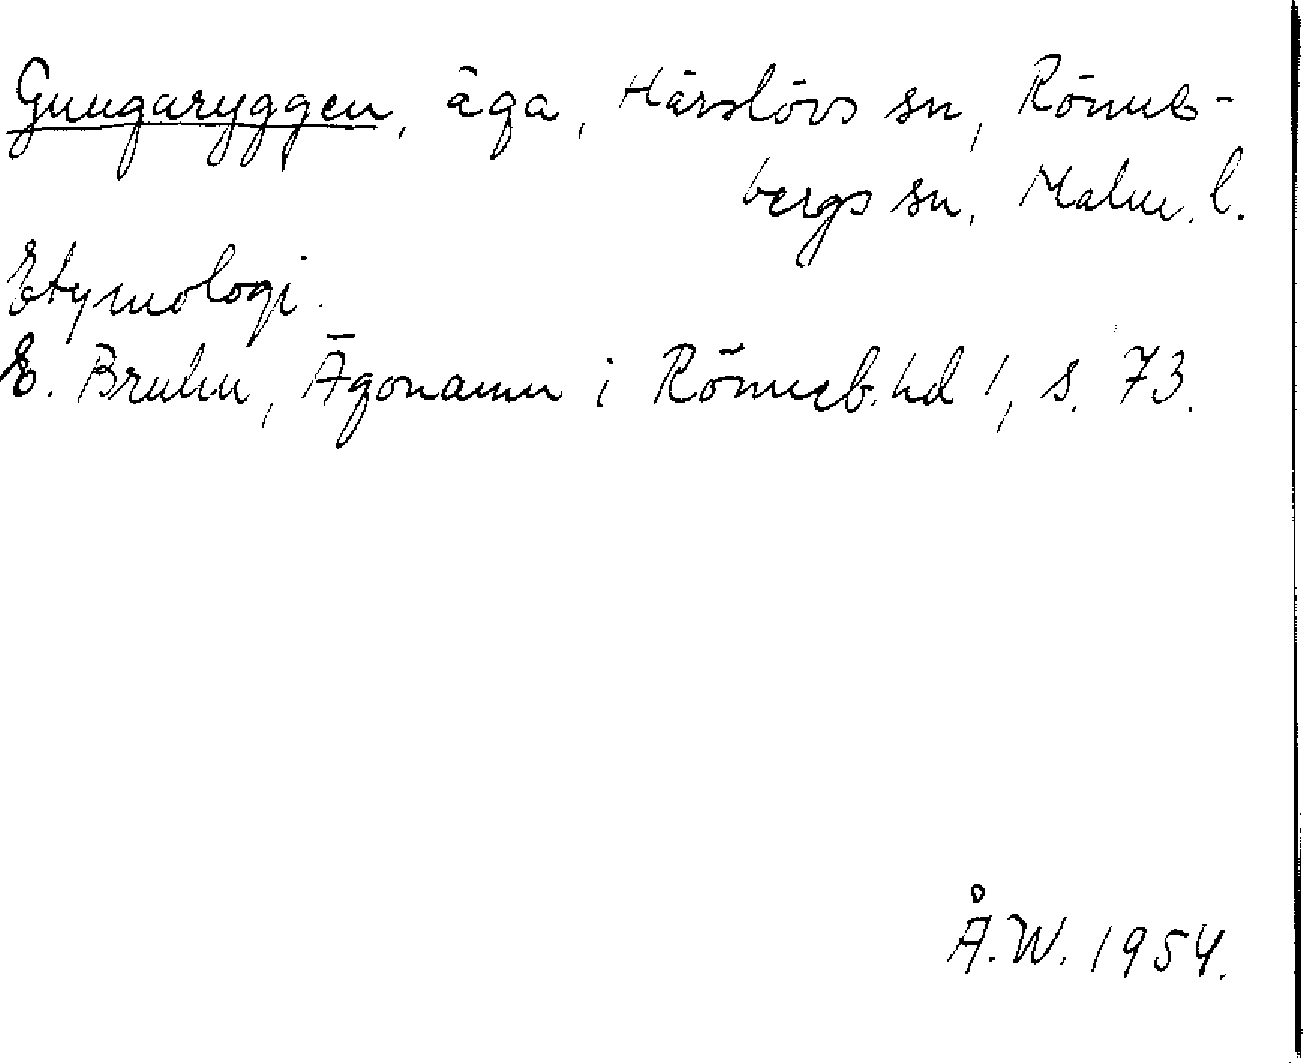 Gungaryggen, äga, Härslövs sn, Rönneb-
bergs sn, Malm. l.
Etymologi.
E. Bruhn, Ägonamn i Rönneb. hd 1, s. 73.
Å.W. 1954.